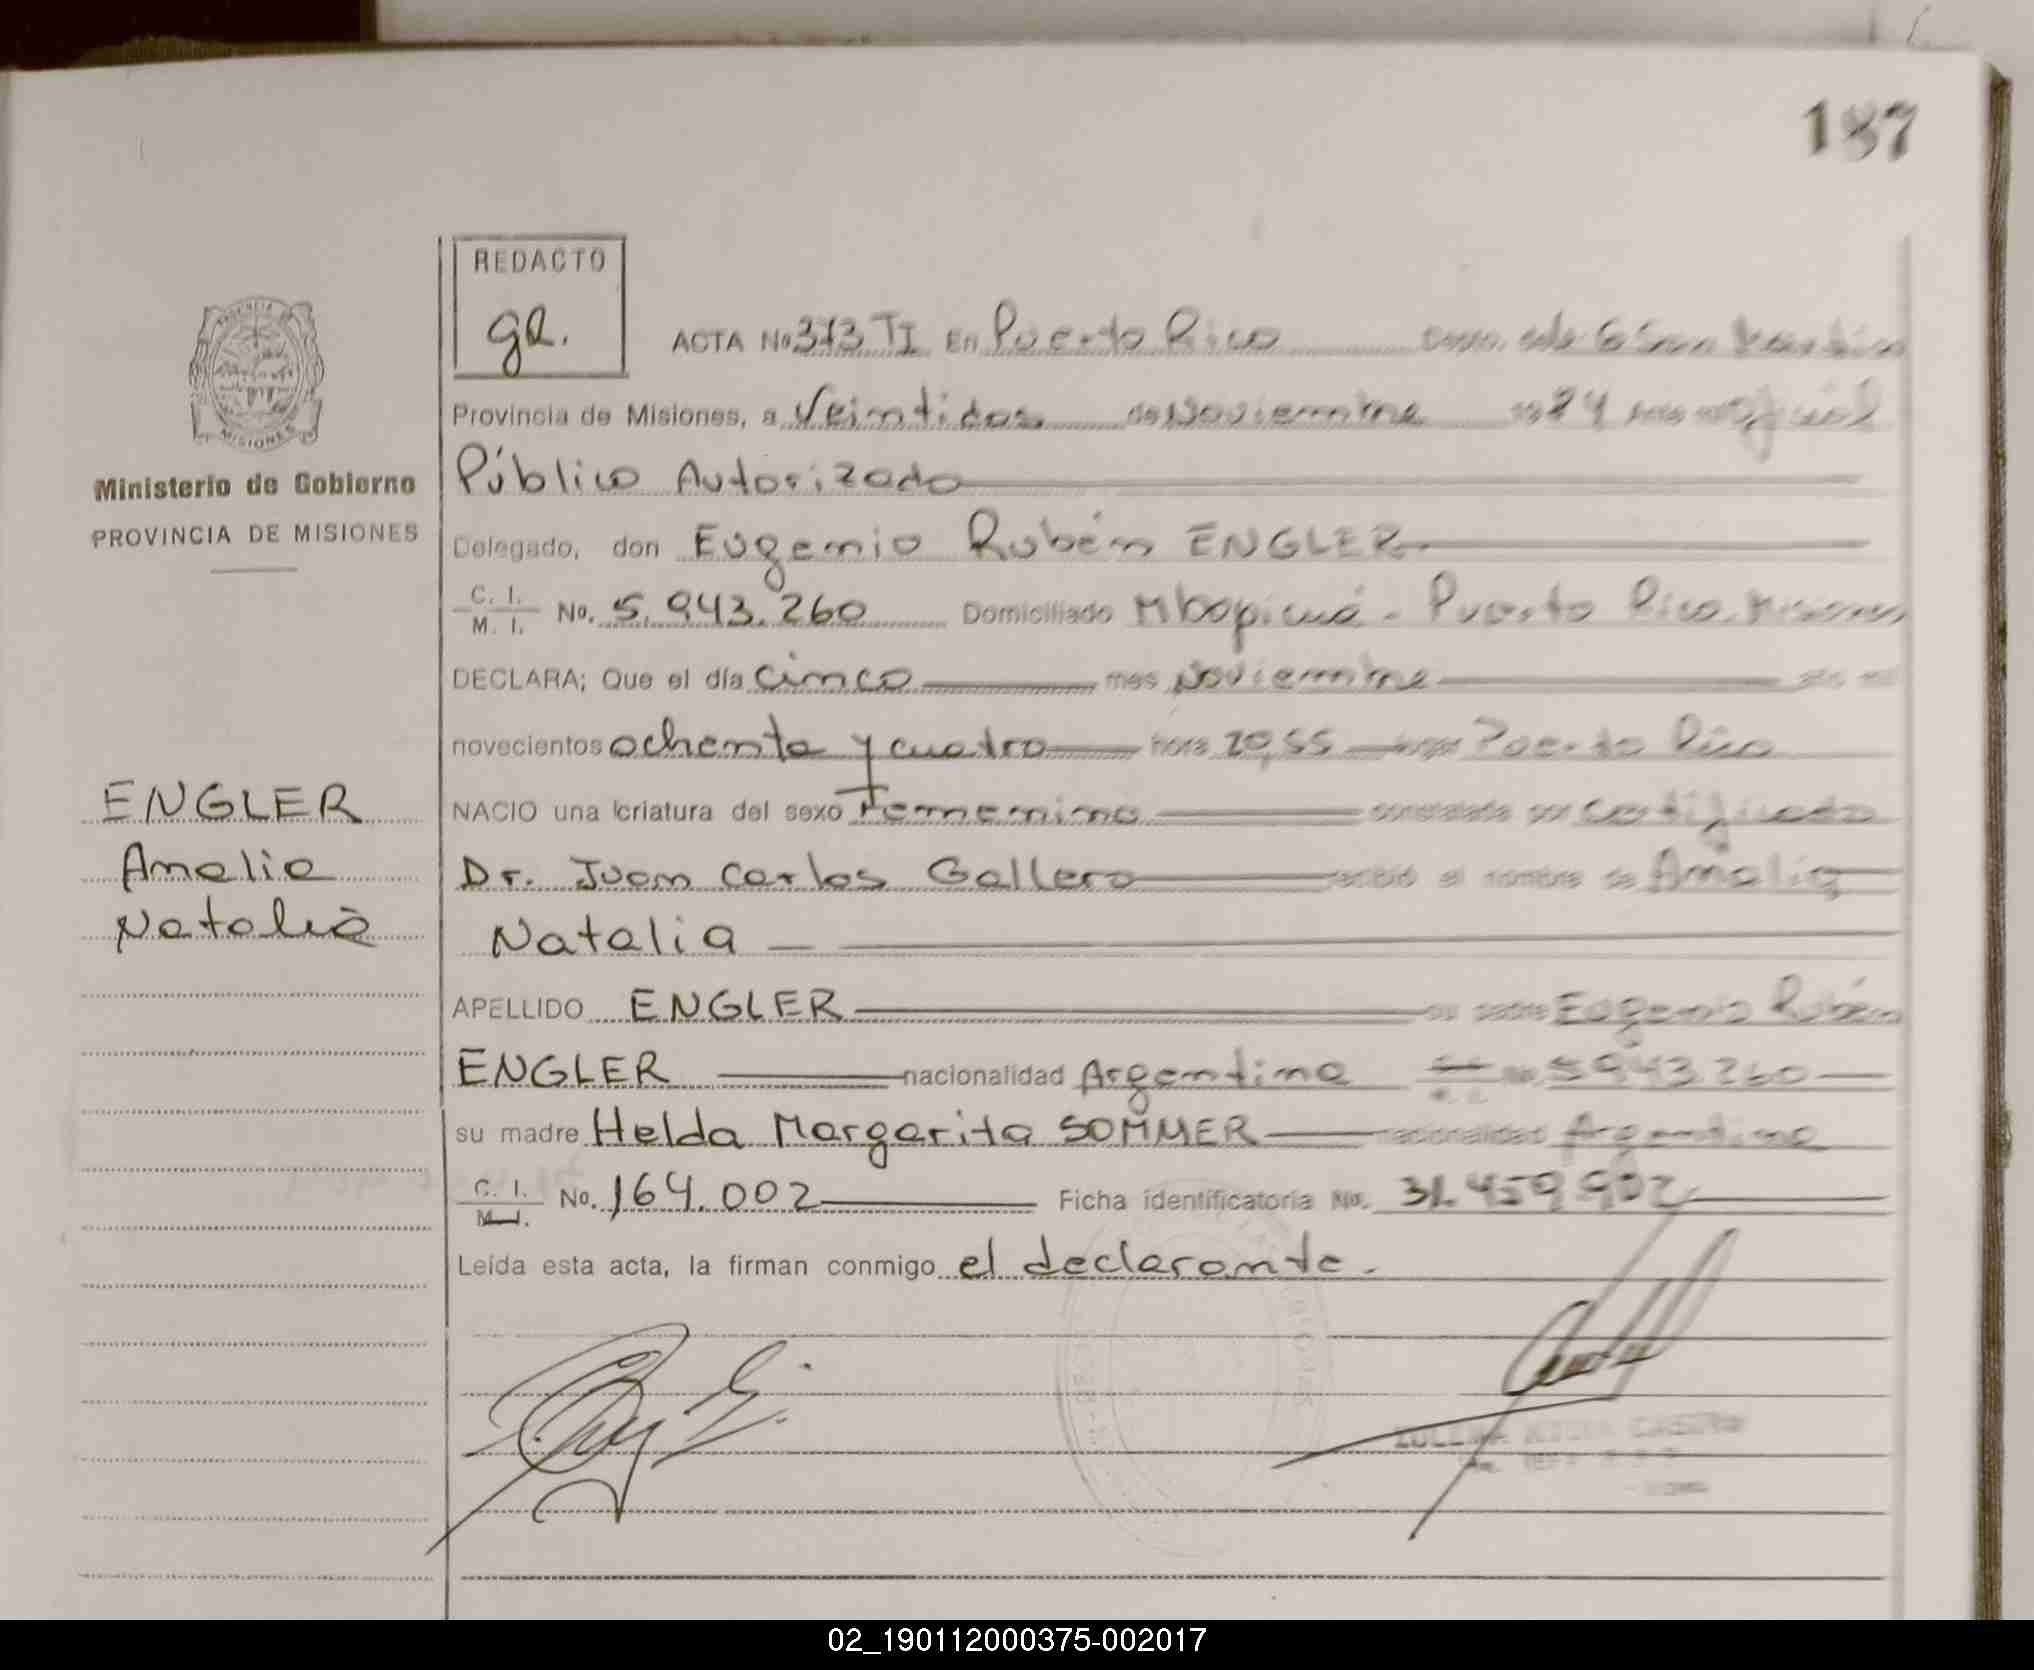 187
REDACTO
gR.
ACTA No 373 TI En Puerto Rico Dpto. Lib. G. San Martín
Provincia de Misiones, a Veintidos de Noviembre 1984 Ante mi Oficial
Público Autorizado
Delegado, don Eugenio Rubén ENGLER
C. I.
M. I.
No. 5.943.260 Domiciliado Mbopicuá - Puerto Rico. Misiones
DECLARA; Que el día cinco mes Noviembre año mil
novecientos ochenta y cuatro hora 20,55 lugar Puerto Rico
NACIO una criatura del sexo Femenino constatada por certificado
Dr. Juan Carlos Gallero recibió el nombre de Amalia
Natalia
APELLIDO ENGLER su padre Eugenio Rubén
ENGLER nacionalidad Argentina C. I. M. I. No. 5943.260
su madre Helda Margarita SOMMER nacionalidad Argentina
C. I.
M. I.
No. 164.002 Ficha identificatoria No. 31.459.902
Leída esta acta, la firman conmigo el declarante.
PROVINCIA DE
MISIONES
Ministerio de Gobierno
PROVINCIA DE MISIONES
ENGLER
Amalia
Natalia
02_190112000375-002017